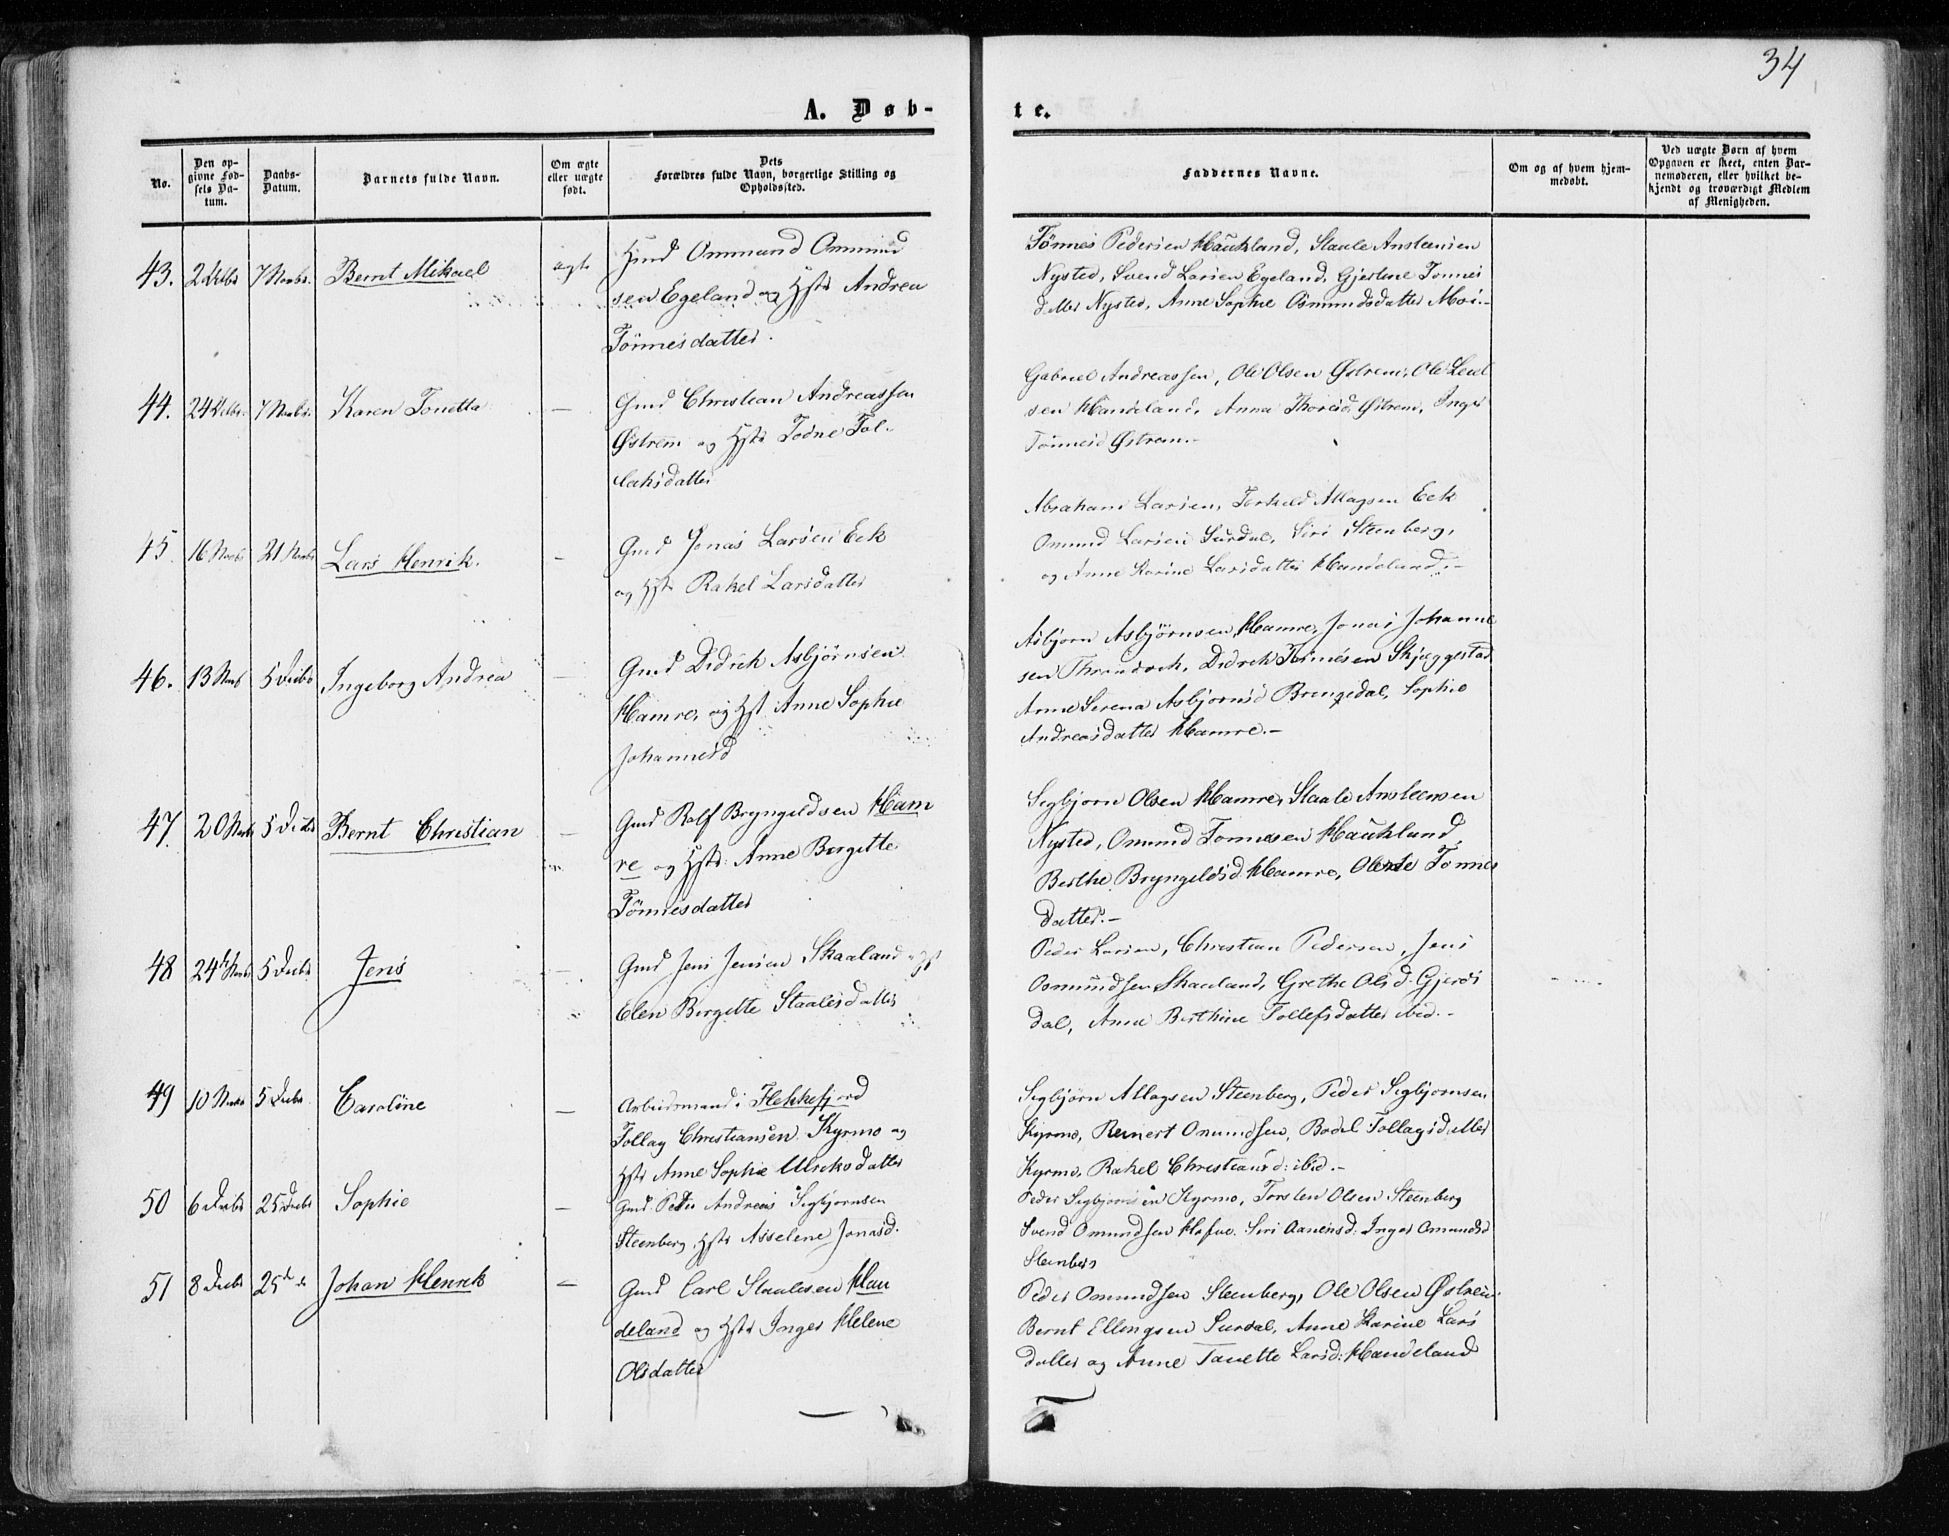 34
A. Døb-
te.
No.
Den op-
givne Fød-
sels Da-
tum.
Daabs-
Datum.
Barnets fulde Navn.
Om ægte
eller uægte
født.
Dets
Forældres fulde Navn, borgerlige Stilling og
Opholdssted.
Faddernes Navne.
Om og af hvem hjem-
medøbt.
Ved uægte Børn af hvem
Opgaven er skeet, enten Bar-
nemoderen, eller hvilket be-
kjendt og troværdigt Medlem
af Menigheden.
43. 7 Novbr. Bernt Mikael ægte
Ommund Ommund
sen Egeland og Hstr Andrea
Tönnesdatter.
Tönnes Pedersen Haukland, Staale Ansteensen
Nysted, Svend Larsen Egeland, Gjertine Tonnes
datter Nysted, Anne Sophie Osmundsdatter Moi.-
44. 7 Novbr. Karen Tonetta —
Gmd Christian Andreassen
Østrem og Hstr Todne Tol-
laksdatter
Gabriel Andreassen, Ole Olsen Østrem, Ole Leul
sen Handeland, Anna Thorsd Østrem, Inger
Tönnesd Østrem.-
45. 16 Novbr 21 Novbr Lars Henrik. —
Gmd Jonas Larsen Eek
og Hstr Rakel Larsdatter
Abraham Larsen, Terkild Allagsen Eek
Omund Larsen Surdal, Siri Steenberg,
og Anne Karine Larsdatter Handeland.-
46. 13 Novb 5 Decbr Ingeborg Andrea —
Gmd Didrik Asbjörnsen
Hamre, og Hst Anne Sophie
Johannesd
Asbjorn Asbjörnsen Hamre, Jonas Johanne
sen, Didrik Tönnesen Skjæggestad
Anne Serena Asbjornsd Brengedal, Sophie
Andreasdatter Hamre.-
47. 20 Novbr 5 Decbr Bernt Christian —
Gmd Rolf Bryngeldsen Ham
re og Hstr: Anne Borgitte
Tönnesdatter
Segbjorn Olsen Hamre, Staale Ansteensen
Nysted, Omund Tonnesen Haukland,
Berthe Bryngeldsd. Hamre, Olene Tönnes
datter.-
48 24de Novbr 5 Decbr Jens —
Gmd Jens Jensen Skaaland og Hst
Elen Borgitte Staalesdatter
Peder Larsen, Christian Pedersen, Jens
Osmundsen Skaaland, Grethe Olsd. Gjers
dal, Anne Berthine Tollefsdatter ibid.-
49 10 Novbr 5 Decbr. Caroline —
Arbeidsmand i Flekkefjord
Tollag Christiansen Kyrmo og
Hstr Anne Sophie Ulriksdatter
Segbjörn Allagsen Steenberg, Peder Segbjornsen
Kyrmo, Reinert Omundsen, Bodel Tollagsdatter
Kyrmo, Rakel Christiansd: ibid.-
50 6 Decbr 25 Decbr Sophie —
Gmd. Peder Andreas Segbjornsen
Steenberg, Hstr Asselene Jonasd.
Peder Segbjornsen Kyrmo, Torsten Olsen Steenberg
Svend Omundsen. Siri Aanensd. Inger Omundsd
Steenberg
51 8 Decbr 25 d Johan Henrik —
Gmd Carl Staalesen Han
deland og Hstr Inger Helene
Olsdatter
Peder Omundsen Steenberg, Ole Olsen Østrem
Bernt Ellingsen Surdal, Anne Karine Lars
datter og Anne Tanette Larsd: Handeland